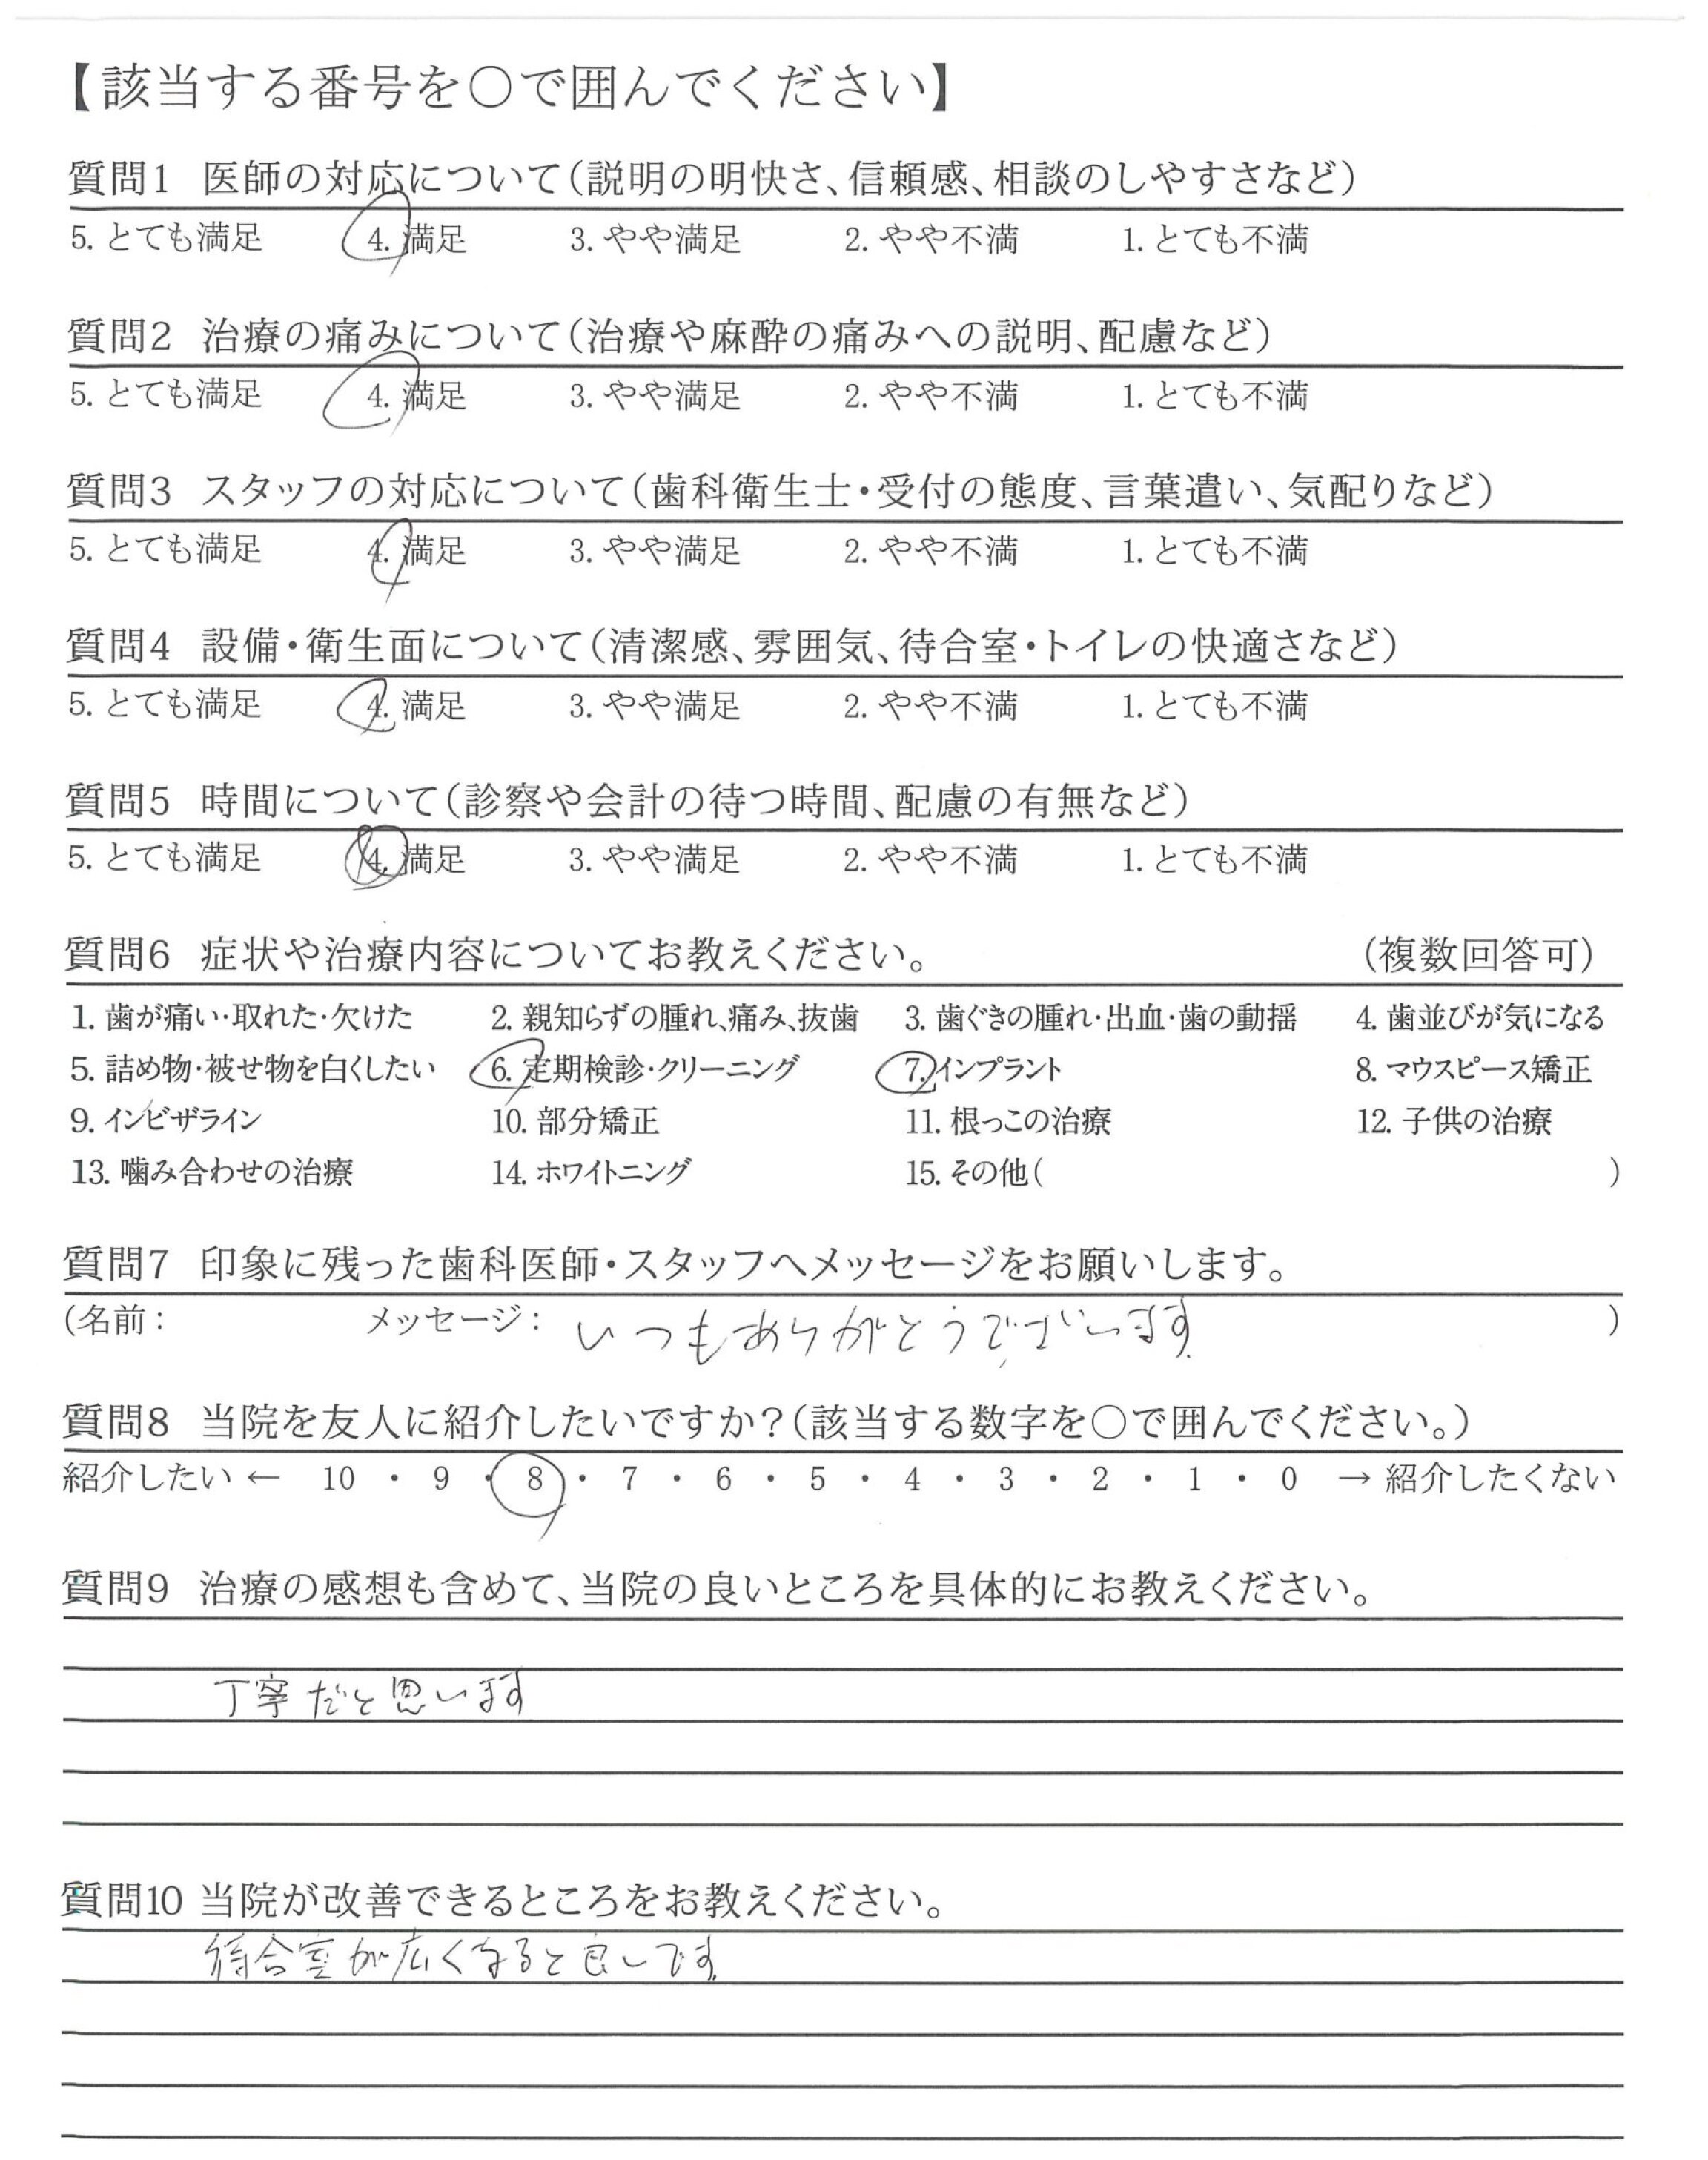 【該当する番号を○で囲んでください】
質問1 医師の対応について(説明の明快さ、信頼感、相談のしやすさなど)
5. とても満足 4. 満足 3. やや満足 2. やや不満 1. とても不満
質問2 治療の痛みについて(治療や麻酔の痛みへの説明、配慮など)
5. とても満足 4. 満足 3. やや満足 2. やや不満 1. とても不満
質問3 スタッフの対応について(歯科衛生士・受付の態度、言葉遣い、気配りなど)
5. とても満足 4. 満足 3. やや満足 2. やや不満 1. とても不満
質問4 設備・衛生面について(清潔感、雰囲気、待合室・トイレの快適さなど)
5. とても満足 4. 満足 3. やや満足 2. やや不満 1. とても不満
質問5 時間について(診察や会計の待つ時間、配慮の有無など)
5. とても満足 4. 満足 3. やや満足 2. やや不満 1. とても不満
質問6 症状や治療内容についてお教えください。 (複数回答可)
1. 歯が痛い・取れた・欠けた 2. 親知らずの腫れ、痛み、抜歯 3. 歯ぐきの腫れ・出血・歯の動揺 4. 歯並びが気になる
5. 詰め物・被せ物を白くしたい 6. 定期検診・クリーニング 7. インプラント 8. マウスピース矯正
9. インビザライン 10. 部分矯正 11. 根っこの治療 12. 子供の治療
13. 噛み合わせの治療 14. ホワイトニング 15. その他( )
質問7 印象に残った歯科医師・スタッフへメッセージをお願いします。
(名前: メッセージ: いつもありがとうございます )
質問8 当院を友人に紹介したいですか?(該当する数字を○で囲んでください。)
紹介したい ← 10 ・ 9 ・ 8 ・ 7 ・ 6 ・ 5 ・ 4 ・ 3 ・ 2 ・ 1 ・ 0 → 紹介したくない
質問9 治療の感想も含めて、当院の良いところを具体的にお教えください。
丁寧だと思います
質問10 当院が改善できるところをお教えください。
待合室が広くなると良いです